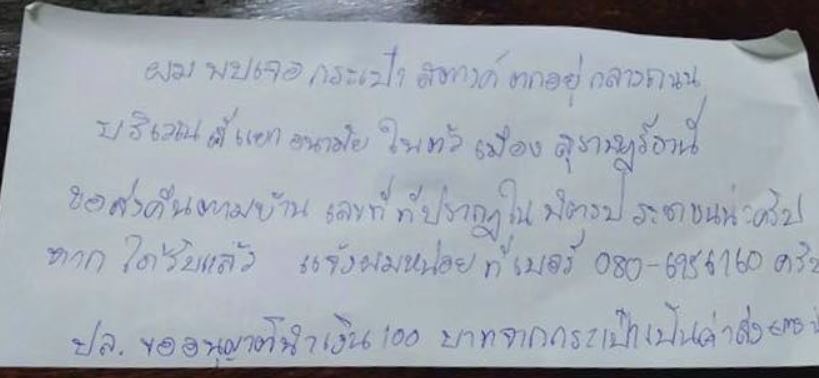 ผม พบเจอ กระเป๋า สตางค์ ตกอยู่ กลางถนน
บริเวณ สี่แยก อนามัย ในตัว เมือง สุราษฎร์ธานี
ขอส่งคืนตามบ้าน เลขที่ ที่ปรากฏใน บัตรประชาชนน่ะครับ
หาก ได้รับแล้ว แจ้งผมหน่อย ที่ เบอร์ ครับ
ปล. ขออนุญาตินำเงิน 100 บาทจากกระเป๋าเป็นค่าส่ง EMS